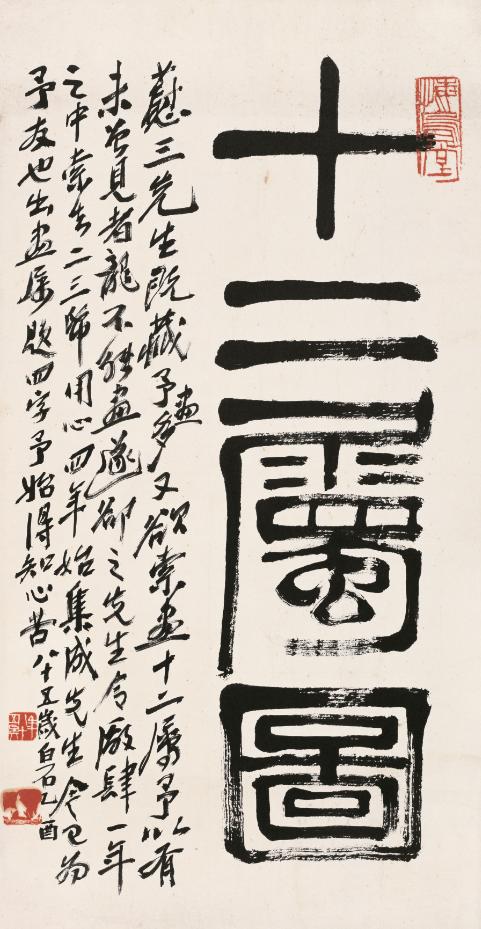 十二屬圖
悔烏堂
慰三先生既藏予畫多又欲索畫十二屬予以有
未曾見者龍不能畫遂卻之先生令廠肆一年
之中索去二三幅用心四年始集成先生今已為
予友也出畫屬題四字予始得知心苦八十五歲白石乙酉